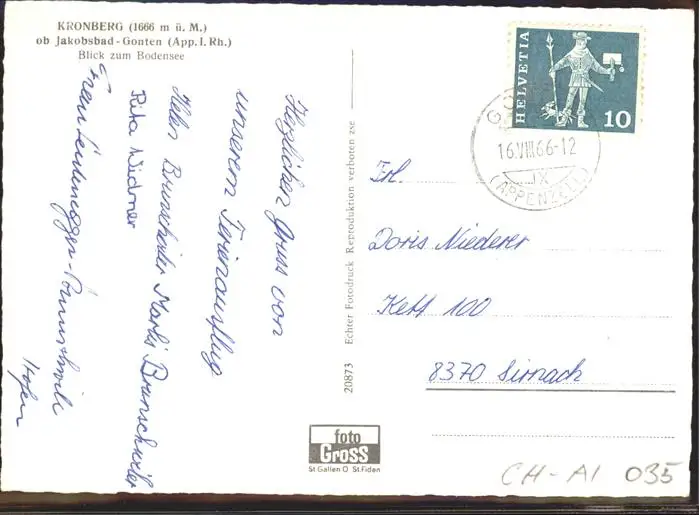 KRONBERG (1666 m ü. M.)
ob Jakobsbad-Gonten (App. I. Rh.)
Blick zum Bodensee
Herzlichen Gruss von
unserem Ferienausflug
Brunschwiler
Rita Widmer
Frau
HELVETIA
10
GO
16.VIII.66-12
IX
(APPENZELL)
Frl.
Doris Niederer
Kett 100
8370 Sirnach
20873 Echter Fotodruck Reproduktion verboten zse
foto
Gross
St Gallen O St. Fiden
CH-AI 035